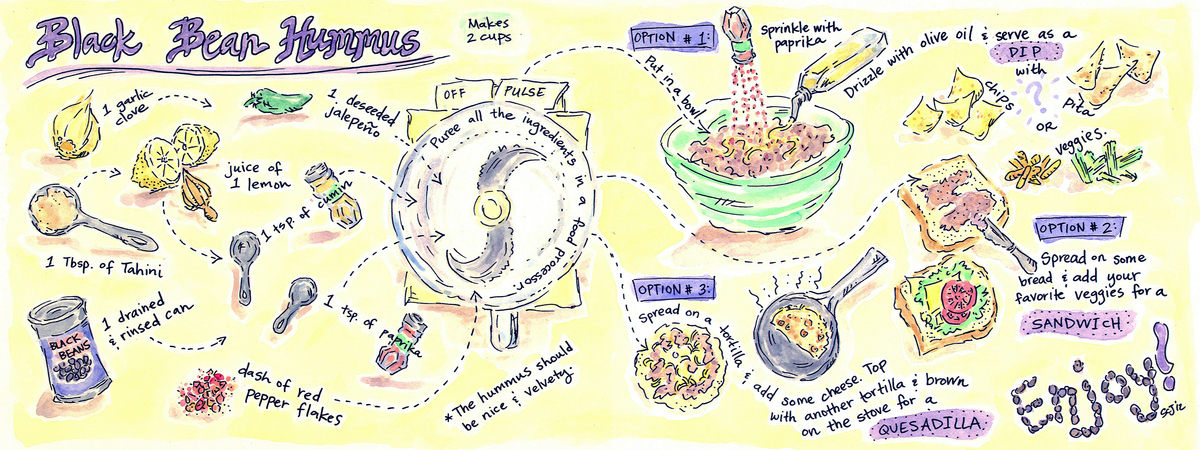 Black Bean Hummus
Makes
2 cups
1 garlic
clove
1 deseeded
jalepeño
juice of
1 lemon
1 Tbsp. of Tahini
1 tsp. of cumin
1 drained
& rinsed can
BLACK
BEANS
1 tsp. of Paprika
dash of red
pepper flakes
OFF
PULSE
Puree all the ingredients in a food processor
*The hummus should
be nice & velvety.
OPTION # 1:
Put in a bowl
Sprinkle with
paprika
Drizzle with olive oil & serve as a
DIP
with
chips
?
Pita
OR
veggies.
OPTION # 2:
Spread on some
bread & add your
favorite veggies for a
SANDWICH
OPTION # 3:
Spread on a tortilla & add some cheese. Top
with another tortilla & brown
on the stove for a
QUESADILLA.
Enjoy!